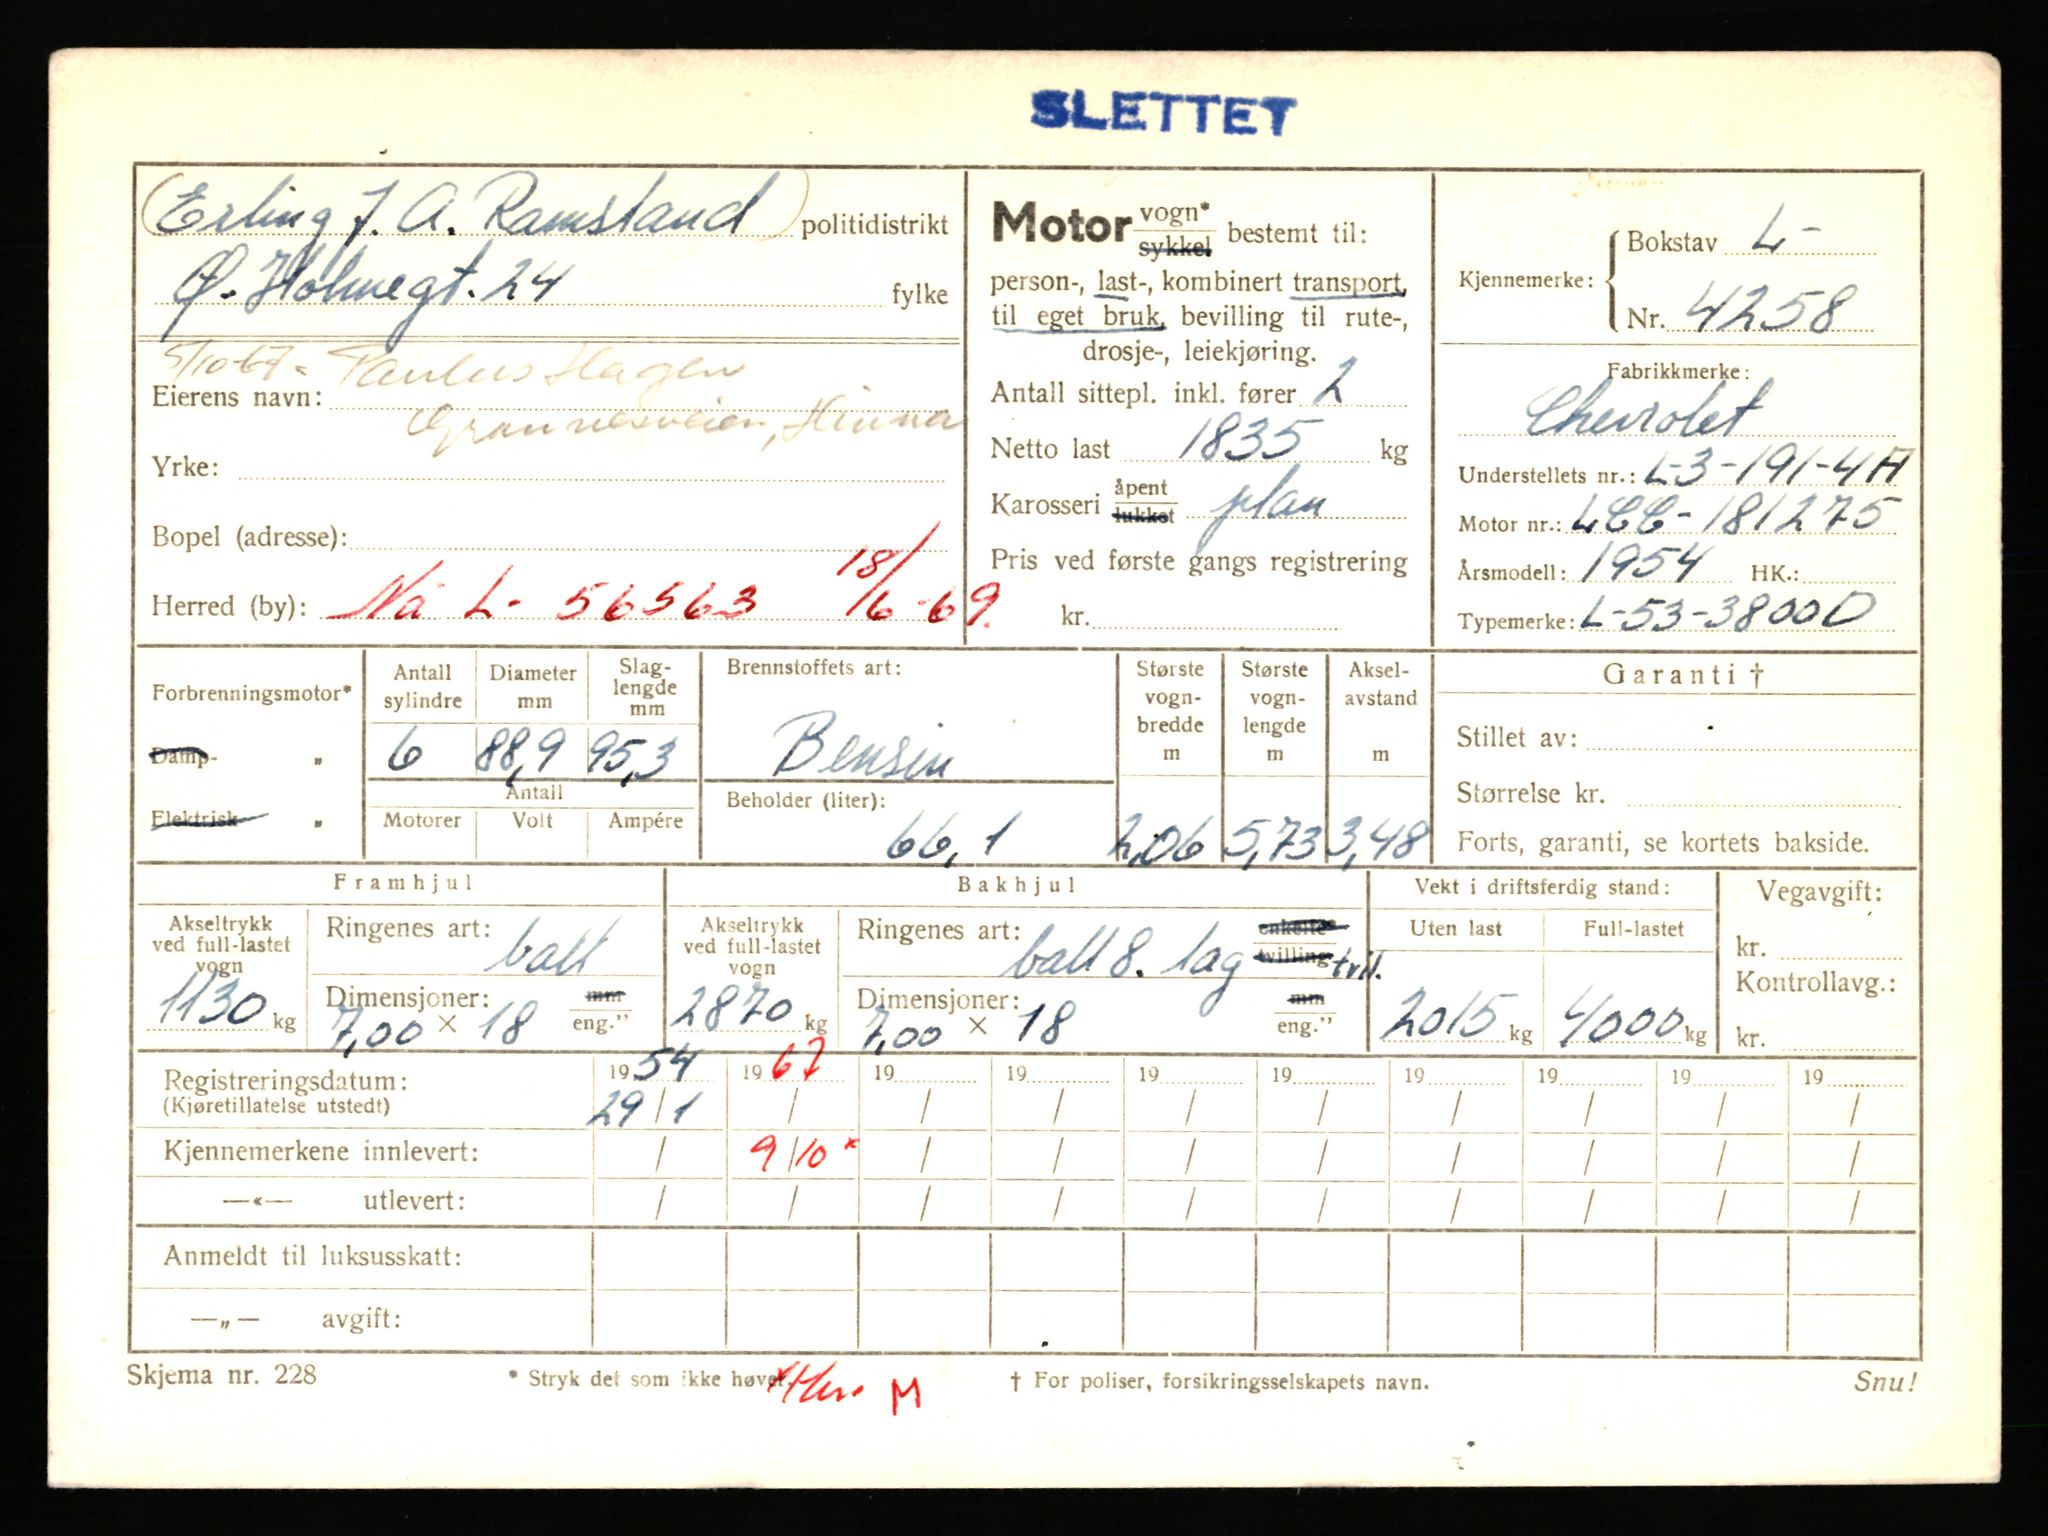 SLETTET
Erling J. A. Ramsland politidistrikt
Ø. Holmegt. 24 fylke
5/10-67 Paulus Hagen
Eierens navn:
Grannesveien, Hinna
Yrke:
Bopel (adresse):
Herred (by): Nå L- 56563 18/6-69.
Motor vogn* sykkel bestemt til:
person-, last-, kombinert transport,
til eget bruk, bevilling til rute-,
drosje-, leiekjøring.
Antall sittepl. inkl. fører 2
Netto last 1835 kg
Karosseri åpent lukket plan
Pris ved første gangs registrering
kr.
Kjennemerke: Bokstav L-
Nr. 4258
Fabrikkmerke:
Chevrolet
Understellets nr.: L-3-191-4H
Motor nr.: LCC-181275
Årsmodell: 1954 HK.:
Typemerke: L-53-3800D
Forbrenningsmotor*
Damp- „
Elektrisk „
Antall sylindre Diameter mm Slag-lengde mm
6 88,9 95,3
Antall
Motorer Volt Ampére
Brennstoffets art:
Bensin
Beholder (liter):
66,1
Største vogn-bredde m Største vogn-lengde m Aksel-avstand m
2,06 5,73 3,48
Garanti †
Stillet av:
Størrelse kr.
Forts, garanti, se kortets bakside.
Framhjul
Akseltrykk ved full-lastet vogn
1130 kg
Ringenes art: ball
Dimensjoner: mm
7,00 × 18 eng."
Bakhjul
Akseltrykk ved full-lastet vogn
2870 kg
Ringenes art: enkelte
ball 8. lag tvilling tvill.
Dimensjoner: mm
7,00 × 18 eng."
Vekt i driftsferdig stand:
Uten last Full-lastet
2015 kg 4000 kg
Vegavgift:
kr.
Kontrollavg.:
kr.
Registreringsdatum: 1954 1967 19 19 19 19 19 19 19 19
(Kjøretillatelse utstedt) 29/1 / / / / / / / / /
Kjennemerkene innlevert: / 9/10* / / / / / / / /
—«— utlevert: / / / / / / / / / /
Anmeldt til luksusskatt:
—„— avgift:
Skjema nr. 228 * Stryk det som ikke høver. M † For poliser, forsikringsselskapets navn. Snu!